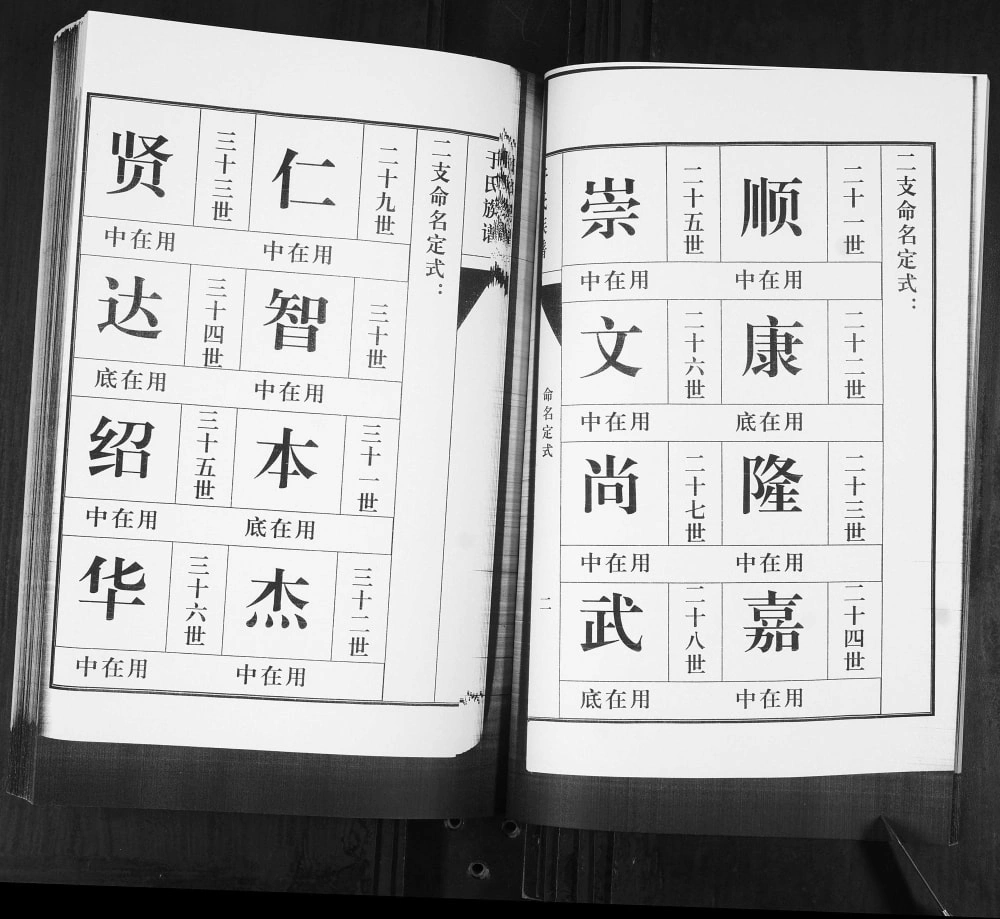 二支命名定式：
二十一世
顺
中在用
二十二世
康
底在用
二十三世
隆
中在用
二十四世
嘉
中在用
二十五世
崇
中在用
二十六世
文
中在用
二十七世
尚
中在用
二十八世
武
底在用
命名定式
二
于氏族谱
二支命名定式：
二十九世
仁
中在用
三十世
智
中在用
三十一世
本
底在用
三十二世
杰
中在用
三十三世
贤
中在用
三十四世
达
底在用
三十五世
绍
中在用
三十六世
华
中在用